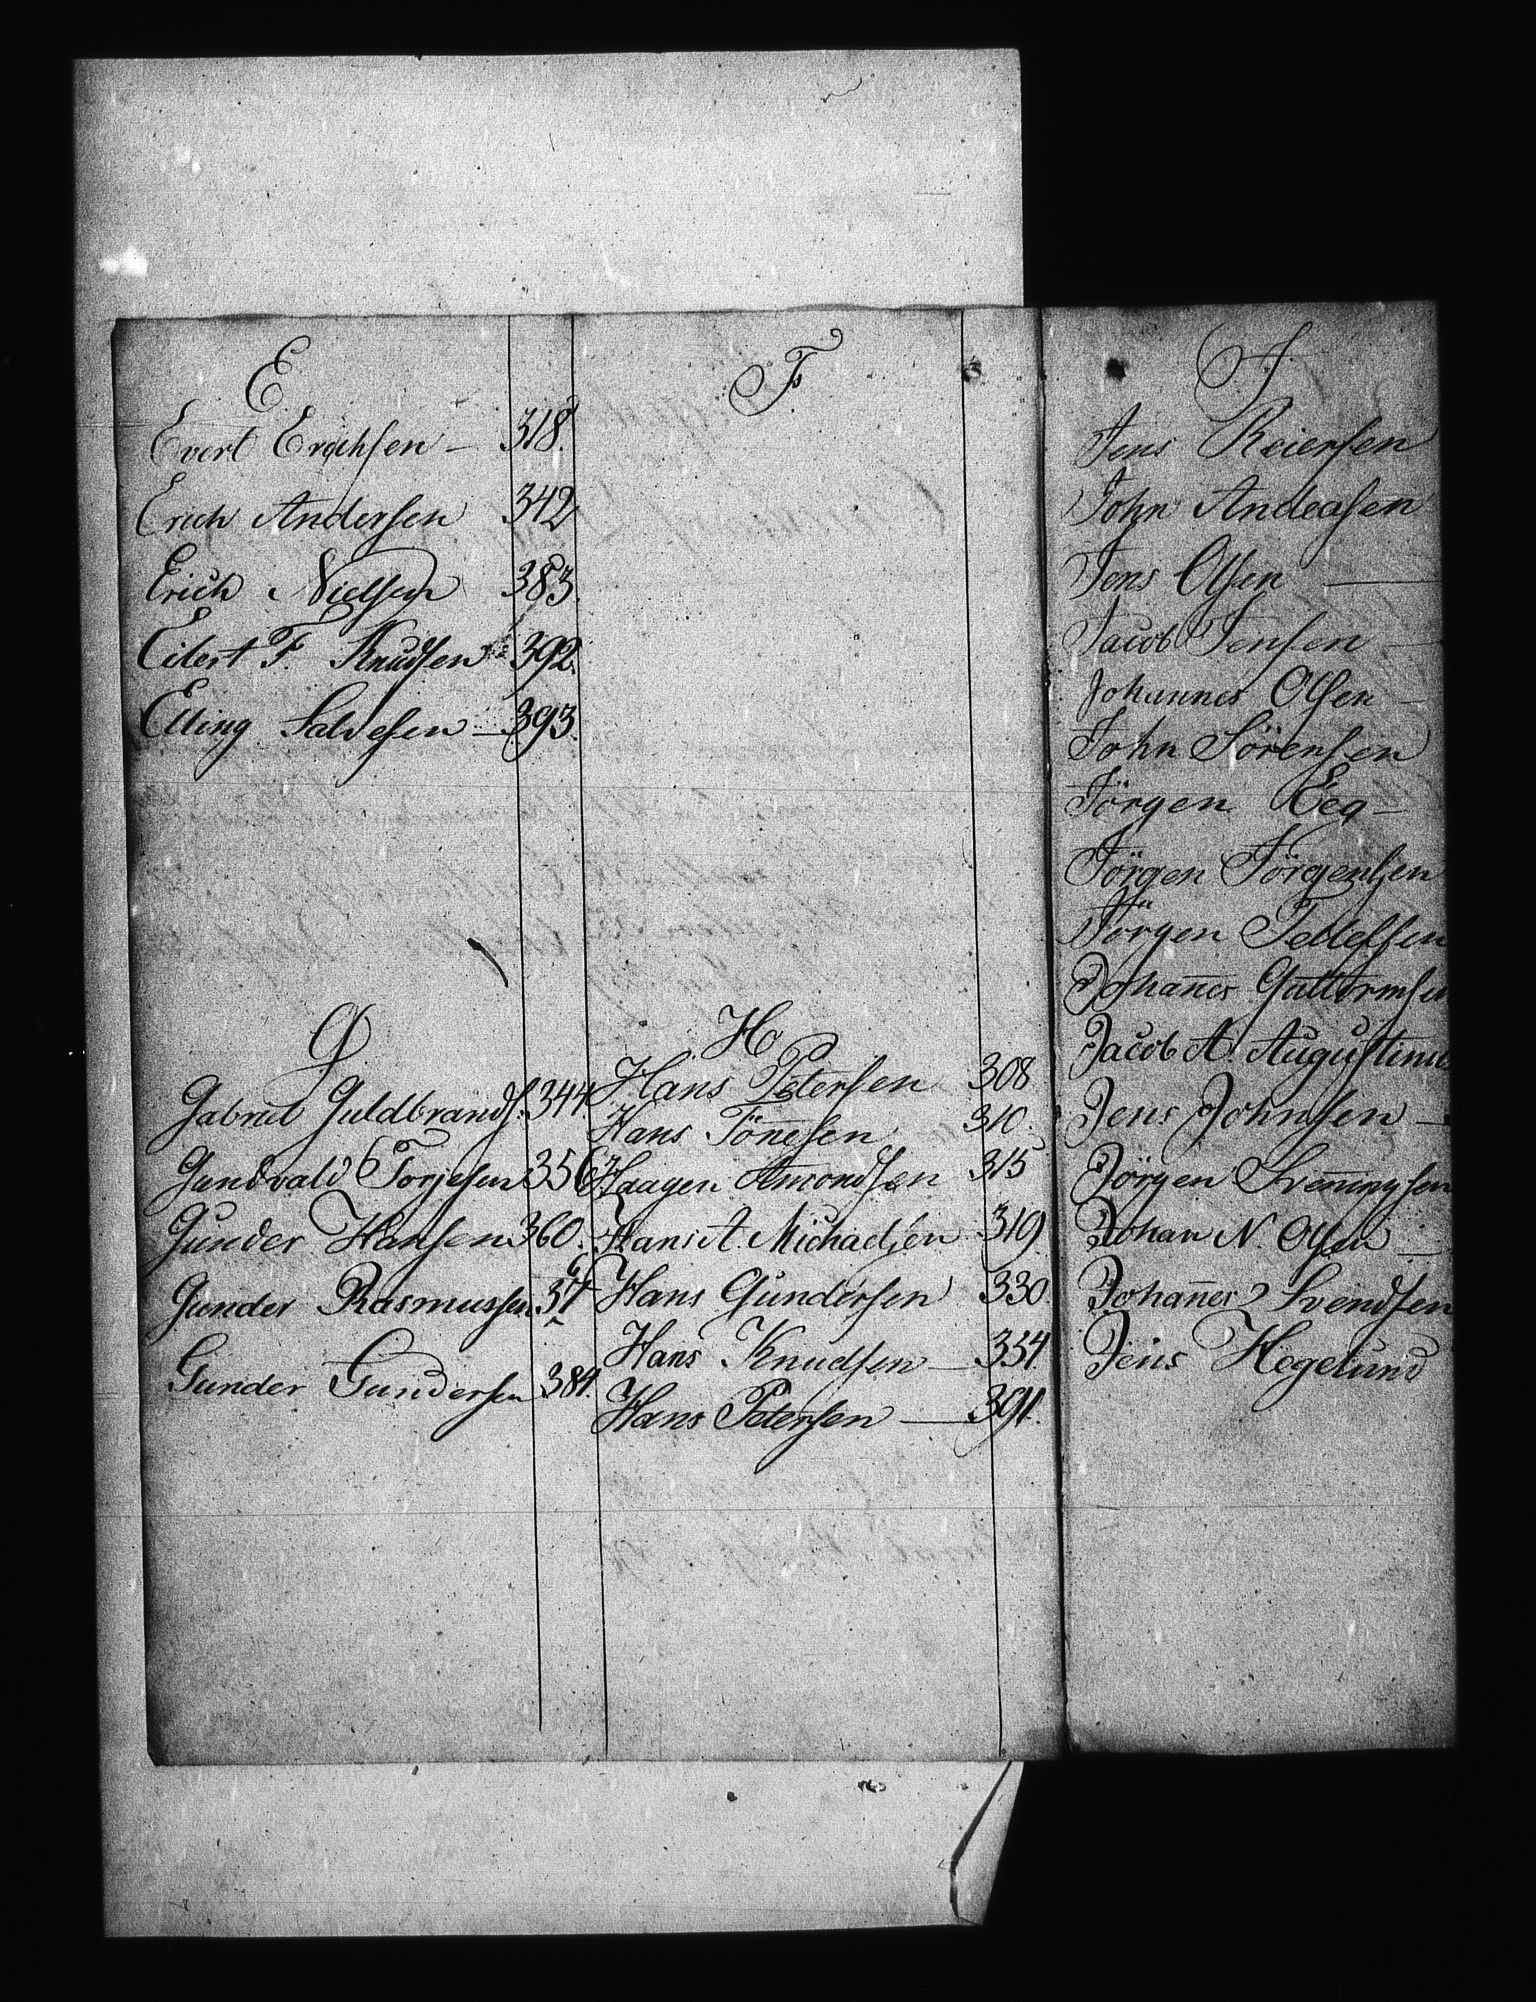 E
Evert Erichsen – 318.
Erich Andersen 342
Erich Nielsen 383.
Eilert F. Knudsen 392.
Elling Salvesen – 393.
F.
G
Gabriel Guldbrands. 344.
Gundvald Torjesen 356
Gunder Hansen 360.
Gunder Rasmussen
Gunder Gundersen 384.
H
Hans Petersen 308
Hans Tönesen 310.
Haagen Amondsen 315
Hans A. Michaelsen 319
Hans Gundersen 330
Hans Knudsen – 354.
Hans Petersen — 391.
J
Jens Reiersen
John Andeasen
Jens Olsen —
Jacob Jensen –
Johannes Olsen –
John Sörensen
Jörgen Eeg –
Jörgen Jörgensen
Jörgen Tellefsen
Johan̄es
Jacob A. Augustinus
Jens Johnsen –
Jörgen Sven̄ingsen
Johan N. Olsen –
Johan̄es Svendsen
Jens Hegelund